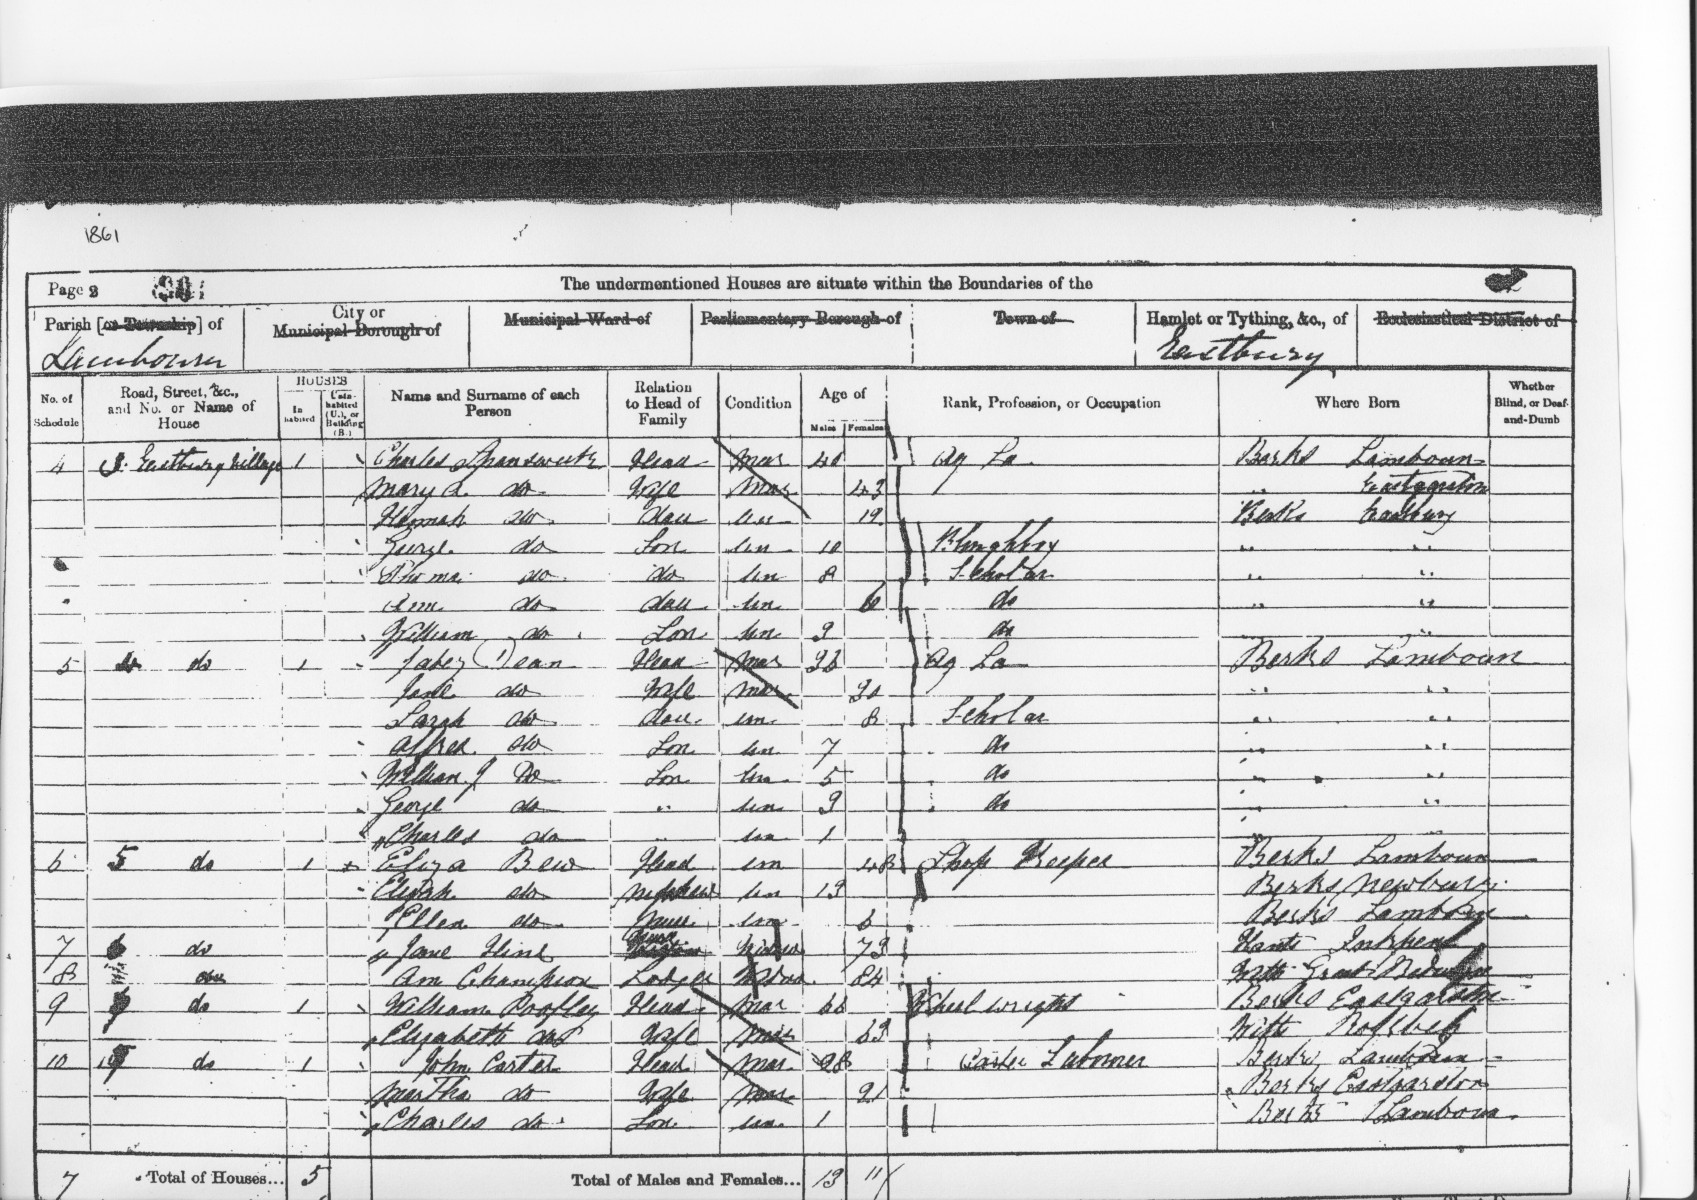 1861
Page 2 The undermentioned Houses are situate within the Boundaries of the
Parish [or Township] of City or Municipal Borough of Municipal Ward of Parliamentary Borough of Town of Hamlet or Tything, &c., of Ecclesiastical District of
Lambourn Eastbury
No. of Schedule Road, Street, &c., and No. or Name of House HOUSES Inhabited Uninhabited (U.), or Building (B.) Name and Surname of each Person Relation to Head of Family Condition Age of Males Females Rank, Profession, or Occupation Where Born Whether Blind, or Deaf-and-Dumb
4 Eastbury Village 1 Charles Spanswick Head Mar 40 Ag La Berks Lambourn
Mary A do Wife Mar 43 " Eastgarston
Hannah do dau un 19 Berks Eastbury
George do Son un 10 Ploughboy " "
Thomas do do un 8 Scholar " "
Ann do dau un 6 do " "
William do Son un 3 do "
5 do 1 Jabez Dean Head Mar 36 Ag La Berks Lambourn
Jane do Wife Mar 30 " "
Sarah do dau un 8 Scholar " "
Alfred do Son un 7 do " "
William J Do Son un 5 do " "
George do " un 3 do " "
Charles do " un 1
6 5 do 1 Eliza Bew Head un 48 Shop Keeper Berks Lambourn
Elijah do Nephew un 13 Berks Newbury
Ellen do Niece un 6 Berks Lambourn
7 6 do Jane Hine Widow 73 Hants Inkpen
8 Ann Champion Lodger Widow 84 Wilts
9 do 1 William Head Mar 66 Wheelwright Berks Eastgarston
Elizabeth do Wife Mar 63 Wilts
10 do 1 John Carter Head Mar 28 Carter Labourer Berks Lambourn
Martha do Wife Mar 21 Berks Eastgarston
Charles do Son un 1 Berks Lambourn
7 Total of Houses... 5 Total of Males and Females... 13 11